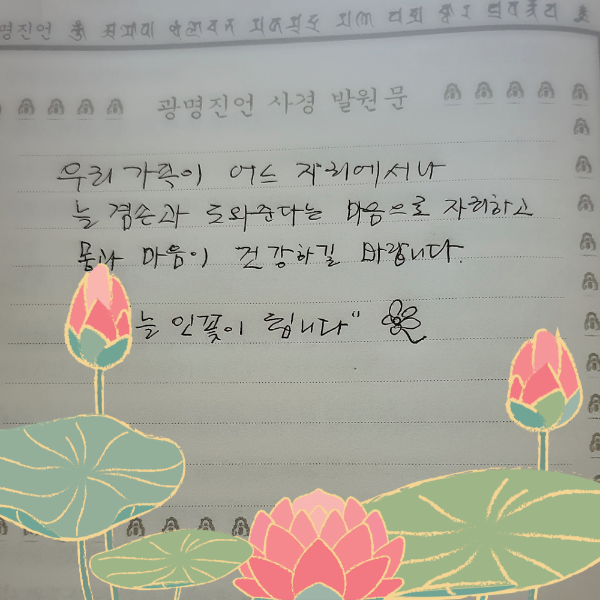 명진언
광명진언 사경 발원문
우리 가족이 어느 자리에서나
늘 겸손과 도와준다는 마음으로 자리하고
몸과 마음이 건강하길 바랍니다.
늘 인꽃이 됩니다"